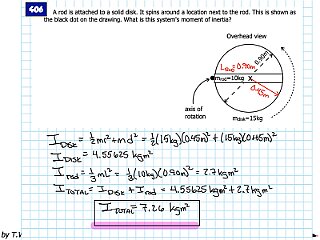 606
A rod is attached to a solid disk. It spins around a location next to the rod. This is shown as
the black dot on the drawing. What is this system's moment of inertia?
Overhead view
L_ROD=0.90m
0.90m
m_ROD=10kg
0.45m
axis of
rotation
m_disk=15kg
I_DISK = ½mr²+md² = ½(15kg)(0.45m)² + (15kg)(0.45m)²
I_DISK = 4.55625 kgm²
I_rod = ⅓mL² = ⅓(10kg)(0.90m)² = 2.7kgm²
I_TOTAL = I_DISK + I_rod = 4.55625kgm² + 2.7kgm²
I_TOTAL = 7.26 kgm²